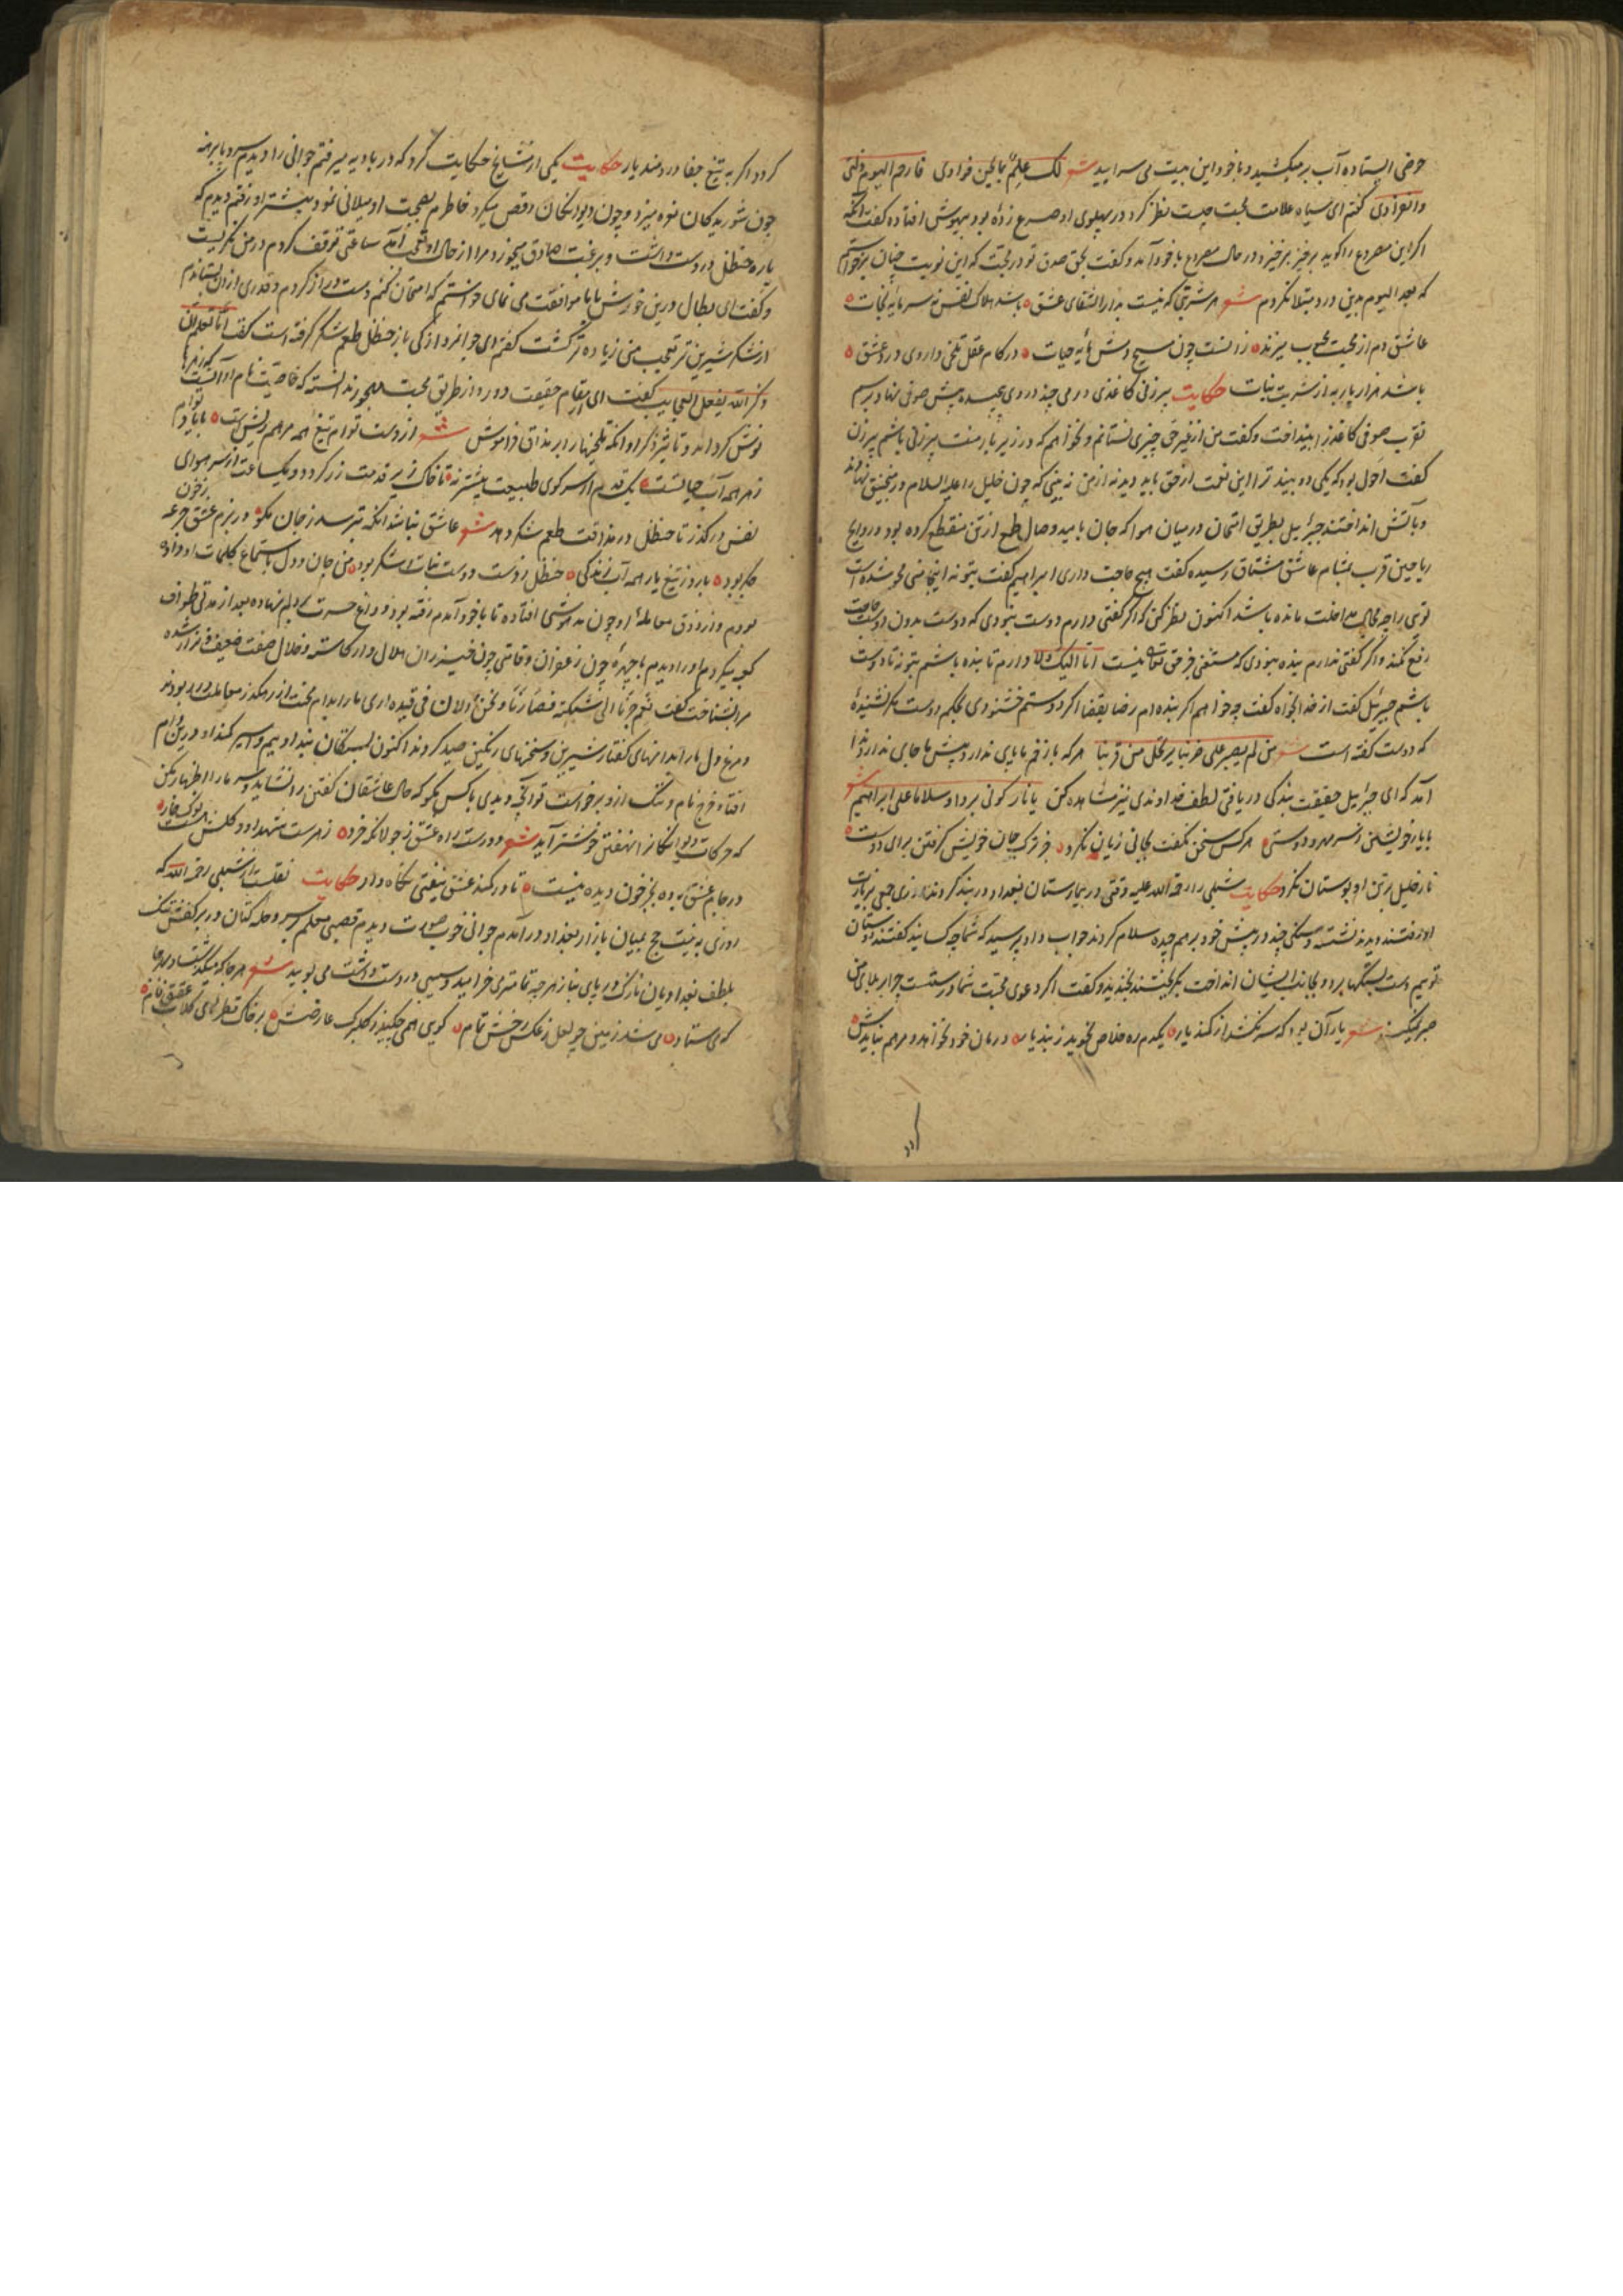 حوضی ایستاده آب بر میکشید و با خود این بیت می سرایید شعر لک علم بما یجن فوادی فارحم الیوم ذلتی
وانفرادی گفتم ای سیاه علامت محبت چیست نظر کرد در پهلوی او مصروع زده بود بیهوش افتاده گفت آنکه
اگر این مصروع را گوید برخیز برخیزد در حال مصروع با خود آمد و گفت بحق صدق تو در محبت که این نوبت چنان برخواستم
که بعد الیوم بدین درد مبتلا نکردم شعر هر شربتی که نیست بدار الشفای عشق باشد هلاک نفس نه سرمایه نجات
عاشق دم از محبت محبوب میزند زانست چون مسیح دمش مایه حیات در کام عقل تلخی داروی درد عشق
باشد هزار بار به از شربت نبات حکایت پیرزنی کاغذی درمی چند در وی پیچیده پیش صوفی نهاد برسم
تقرب صوفی کاغذ را بینداخت و گفت من از غیر حق چیزی نستانم و نخواهم که در زیر بار منت پیرزنی باشم پیرزن
گفت احول بود که یکی دو بیند ترا این نعت از حق باید دید نه از من نه بینی که چون خلیل را علیه السلام در منجنیق نهادند
و بآتش انداختند جبرئیل بطریق امتحان در میان هوا که جان بامید وصال طمع از تن منقطع کرده بود و روایح
ریاحین قرب بمشام عاشق مشتاق رسیده گفت هیچ حاجت داری ابراهیم گفت بتو نه اینجا منی محو شده است
توی را چه مجال مداخلت مانده باشد اکنون نظر کن که اگر گفتی دارم دوست نبودی که دوست بدون دوست حاجت
رفع نکند و اگر گفتی ندارم بنده نبودی که مستغنی جز حق تعالی نیست اما الیک فلا دارم تا بنده باشم بتو نه تا دوست
باشم جبرئیل گفت از خدا بخواه گفت چه خواهم اگر بنده ام رضا بقضا اگر دوستم خشنودی بحکم دوست مگر نشنیدهٔ
که دوست گفته است شعر من لم یصبر علی ضربنا یرتحل من قربنا هر که با زخم ما پای ندارد پیش ما جای ندارد ندا
آمد که ای جبرایل حقیقت بندگی دریافتی لطف خداوندی نیز مشاهده کن یا نار کونی بردا و سلاما علی ابراهیم شعر
با یار خویشتن ز سر مهر و دوستی هر کس سخن نگفت بجانی زیان نکرد جز ترک جان خویش گرفتن برای دوست
نار خلیل بر تن او بوستان نکرد حکایت شبلی را رحمة الله علیه وقتی در بیمارستان بغداد در بند کردند روزی جمعی بزیارت
او رفتند دیدند نشسته و سنگی چند در پیش خود برهم چیده سلام کردند جواب داد و پرسید که شما چه کسانید گفتند دوستان
توییم دست بسنگها برد و بجانب ایشان انداخت بگریختند بخندید و گفت اگر دعوی محبت شما درستست چرا بر بلای من
صبر نمیکنید شعر یار آن بود که سر نکشد از کمند یار یکدم ره خلاص نجوید ز بند یار درمان خود نخواهد و مرهم نبایدش
گردد اگر به تیغ جفا دردمند یار حکایت یکی از مشایخ حکایت کرد که در بادیه میرفتم جوانی را دیدم سر و پا برهنه
چون شوریدگان نعره میزد و چون دیوانگان رقص میکرد خاطرم بصحبت او میلانی نمود پیشتر او رفتم دیدم که
پاره حنظل در دست داشت و برغبت صادق میخورد مرا از حال او تعجب آمد ساعتی توقف کردم در من نگریست
و گفت ای بطال درین خورش با ما موافقت می نمای خواستم که امتحان کنم دست دراز کردم و قدری از وی بستاندم
از شکر شیرین تر تعجب من زیاده تر گشت گفتم ای جوانمرد از کی باز حنظل طعم شکر گرفته است گفت اما تعلم ان
ذکر الله یفعل العجایب گفت ای از مقام حقیقت دور و از طریق محبت مهجور ندانسته که خاصیت نام او آنست که زهرها
نوش گرداند و تاثیر ذکر او آنکه تلخیها را بر مذاق فراموش شعر از دست تو ام تیغ همه مرهم ریش است با یاد توام
زهر همه آب حیاتست یک قدم از سر کوی طبیعت پیشتر نه تا خاک زیر قدمت زر گردد و یکساعت از سر هوای
نفس درگذر تا حنظل در مذاقت طعم شکر دهد شعر عاشق نباشد آنکه بترسد ز جان مگو در بزم عشق جرعه ز خون
جگر بود با روز تیغ یار همه آب زندگی حنظل ز دست دوست نبات و شکر بود من جان و دل باستماع کلمات او داده
بودم و از ذوق معاملهٔ او چون مدهوشی افتاده تا با خود آمدم رفته بود و داغ حسرت بر دلم نهاده بعد از مدتی طواف
کعبه میکردم او را دیدم با چهرهٔ چون زعفران و قامتی چون خیزران هلال وار کاسته و خلال صفت ضعیف و نزار شده
مرا بشناخت گفت نعم جرنا الی شبکته فصارنا و نحن الان فی قیده اری ما را بدام محنت از رهگذر معاملت در ربودند
و مرغ دل ما را بدانهای گفتار شیرین و سخنهای رنگین صید کردند اکنون بستگان بند اوییم و اسیر کمند او درین دام
افتاد مرغ نام و ننگ از او برخواست تو آنچه دیدی با کس مگو که حال عاشقان گفتن را نشاید و سر ما را اظهار مکن
که حرکات دیوانگان را نهفتن خوشتر آید شعر دورست راه عشق ز جولانگه خرد زهرست شهد او و گلش هست نوک خار
در جام عشق باده بجز خون دیده نیست تا در کمند عشق نیفتی نگاه دار حکایت نقلست از شبلی رحمه الله که
روزی به نیت حج بمیان بازار بغداد در آمدم جوانی خوب صورت دیدم قصبی معلم بر سر و حله کتان در بر کفش تنک
بلطف بغدادیان نازک در پای بناز هرچه تمامتر می خرامید و سیبی در دست داشت می بویید شعر هر جا که میگذشت و بهر جا
که می ستاد می شد زمین چو لعل ز عکس رخش تمام گویی همی چکید ز گلبرگ عارضش بر خاک قطرهای گلاب عقیق فام